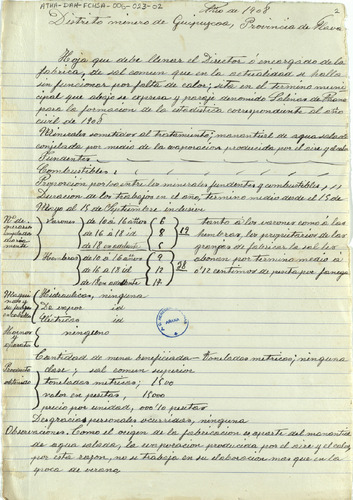 ATHA-DAH-FCHSA-006-023-02
2
Año de 1908
Distrito minero de Guipuzcoa, Provincia de Alava
Hoja que debe llenar el Director ó encargado de la
fabrica, de sal comun que en la actualidad se halla
sin funcionar por falta de calor; sita en el termino muni-
cipal que abajo se espresa y paraje denomido Salinas de Añana
para la formacion de la estadistica correspondiente al año
civil de 1908
Minerales sometidos al tratamiento; manantial de agua salada
conjelada por medio de la evaporacion producida por el aire y el calor
Fundentes
Combustibles
Proporcion por % entre los minerales fundentes y combustibles, "
Duracion de los trabajos en el año, termino medio desde el 15 de
Mayo al 15 de Septiembre inclusive
Nº de
operarios
empleados
diaria
mente
Varones
de 10 a 16 años 6
de 16 a 18 id 8
de 18 en adelante 5
19
Hembras
de 10 a 16 años 9
de 16 a 18 id 12
de 18 en adelante 17
38
tanto á los varones como á las
hembras, los propietarios de las
granjas de fabricar la sal les
abonan por termino medio á
0'12 centimos de peseta por fanega
Hidraulicas, ninguna
De vapor id
Electricas id
Hornos y
aparatos
ninguno
Cantidad de mena beneficiada - toneladas metricas; ninguna
Producto
obtenido
clase; sal comun superior
toneladas metricas; 1500
valor en pesetas, 15000
precio por unidad, 000'10 pesetas
Desgracias personales ocurridas, ninguna
Observaciones. Como el origen de la fabricacion es aparte del manantial
de agua salada, la evaporacion producida por el aire y el calor,
por esta razon, no se trabaja en su elaboracion mas que en la
epoca de verano